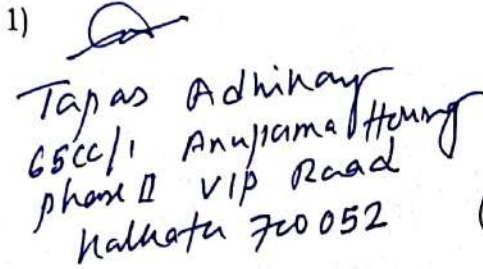 1)
Tapas Adhikary
65CC/1 Anupama Housing
phase II VIP Road
Kolkata 700052